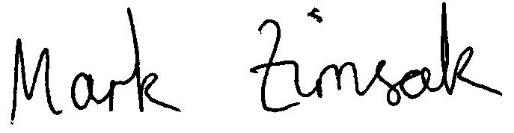 Mark Zirnsak